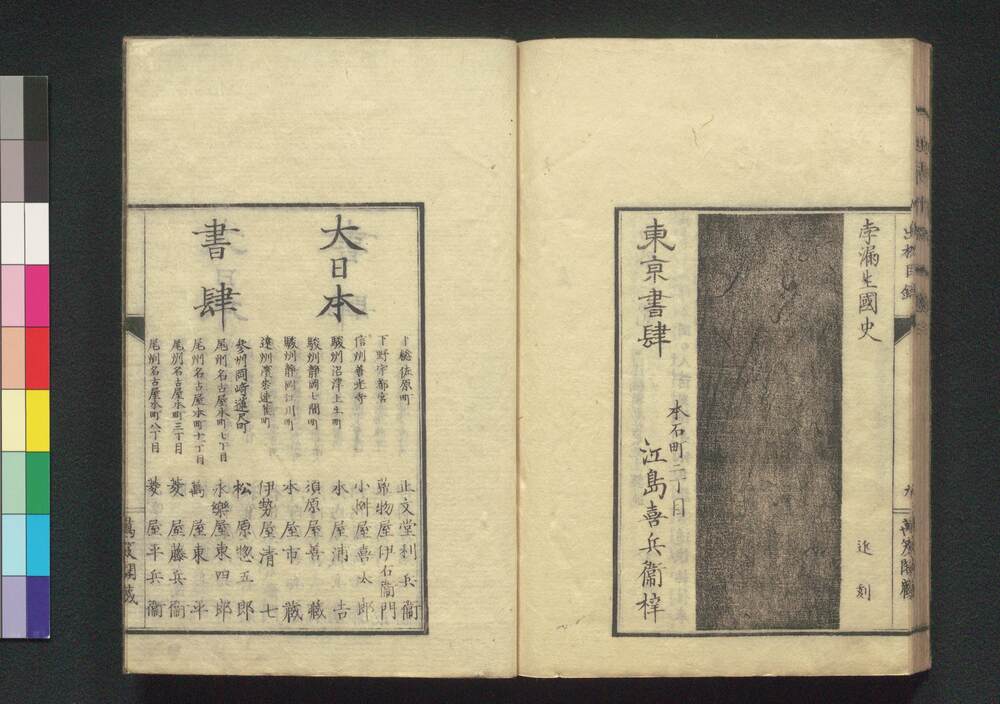 李漏生國史
近刻
東京書肆
本石町二丁目
江島喜兵衞梓
大日本
書肆
下総佐原町 正文堂利兵衞
下野宇都宮 荒物屋伊右衞門
信州善光寺 小桝屋喜太郎
駿州沼津上土町 水屋浦吉
駿州静岡七間町 須原屋善藏
駿州静岡江川町 水屋市藏
遠州濱松連雀町 伊勢屋清七
参州岡崎連尺町 松原惣五郎
尾州名古屋本町七丁目 永樂屋東四郎
尾州名古屋本町十一丁目 萬屋東平
尾州名古屋本町三丁目 菱屋藤兵衞
尾州名古屋本町八丁目 菱屋平兵衞